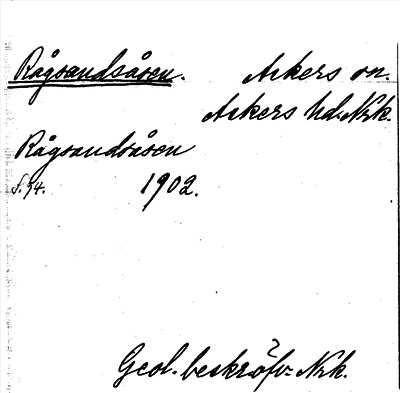 Rågsandsåsen. Askers sn.
Askers hd. Nrk.
Rågsandsåsen
s. 94. 1902.
Geol. beskröfv. Nrk.